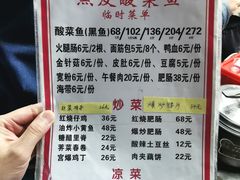 点及酸菜鱼
临时菜单
酸菜鱼(黑鱼)68/102/136/204/272
火腿肠6元/2根、面筋包5元/8个、鸭血6元/份
金针菇6元/份、皮肚6元/份、豆腐5元/份
宽粉6元/份、午餐肉20元/份、肥肠38元/份
海带6元/份
炒菜
红烧仔鸡 36元
爆炒肥肠
油炸小黄鱼 48元
红烧肥肠 48元
荠菜春卷 24元
酸辣土豆丝 12元
宫爆鸡丁 26元
肉夹藕饼 22元
凉菜